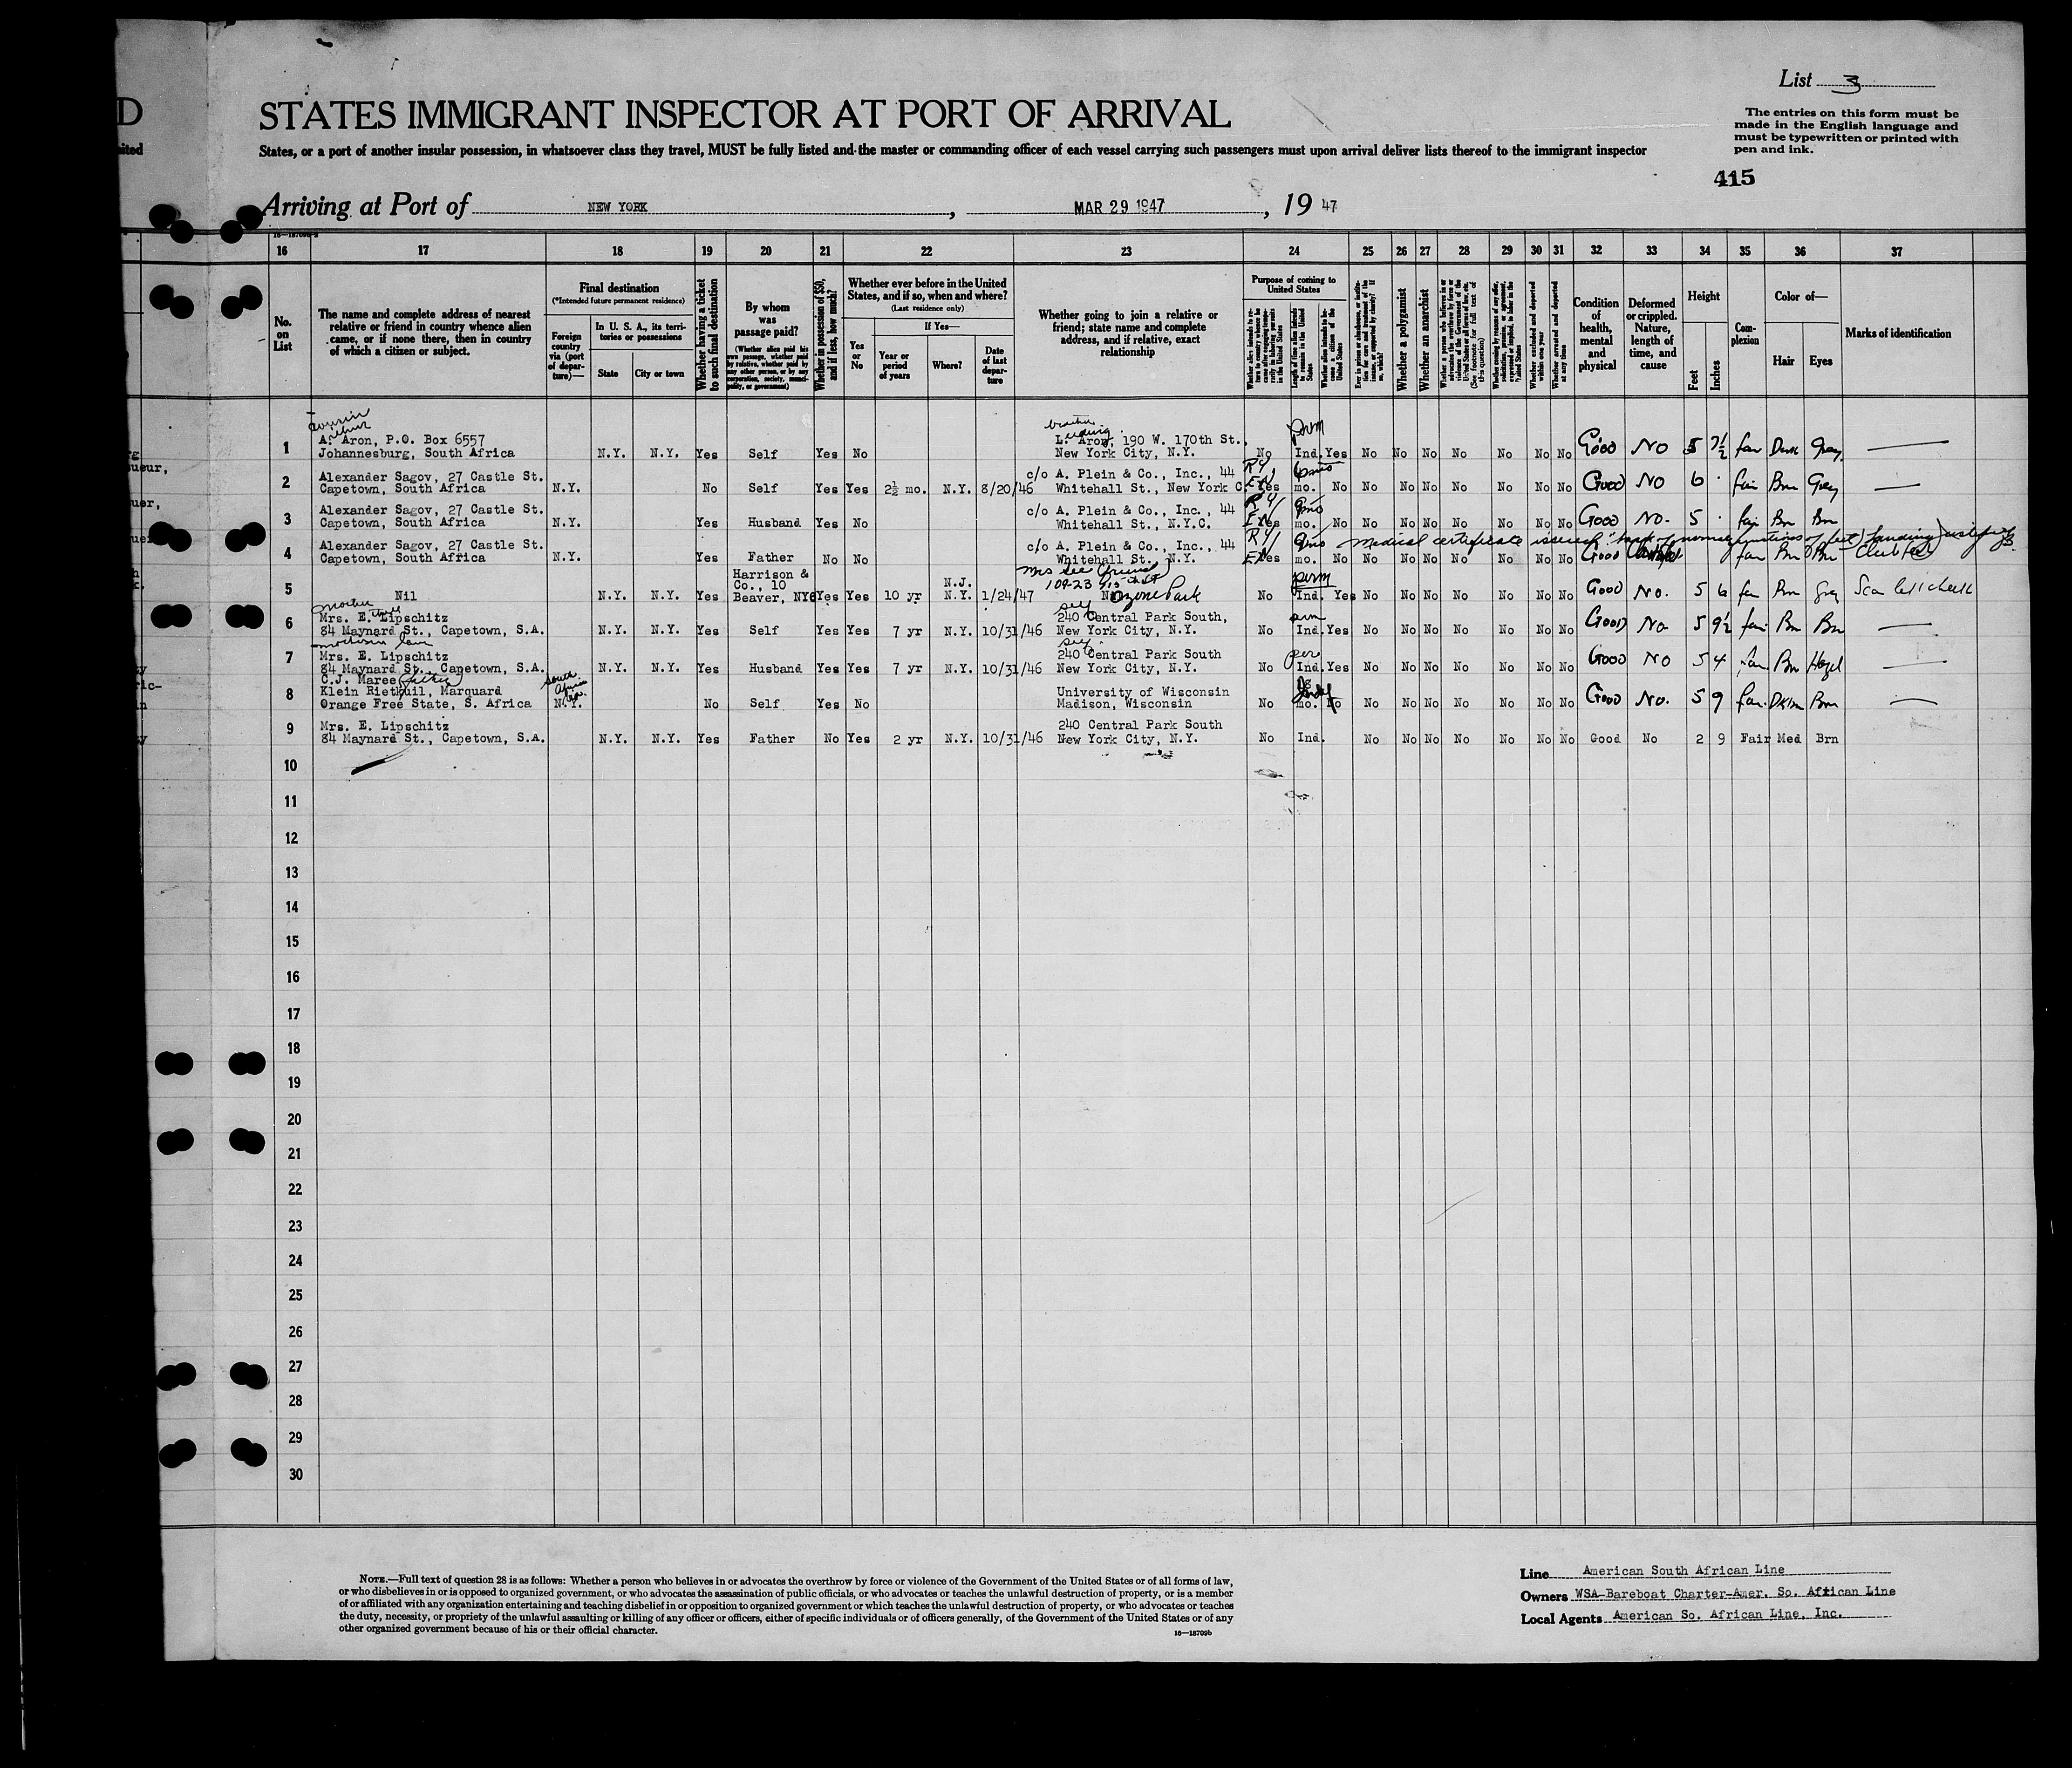 List 3
D
STATES IMMIGRANT INSPECTOR AT PORT OF ARRIVAL
The entries on this form must be
made in the English language and
must be typewritten or printed with
pen and ink.
States, or a port of another insular possession, in whatsoever class they travel, MUST be fully listed and the master or commanding officer of each vessel carrying such passengers must upon arrival deliver lists thereof to the immigrant inspector
415
Arriving at Port of NEW YORK, MAR 29 1947, 19 47
16 17 18 19 20 21 22 23 24 25 26 27 28 29 30 31 32 33 34 35 36 37
No. on List
The name and complete address of nearest relative or friend in country whence alien came, or if none there, then in country of which a citizen or subject.
Final destination
(*Intended future permanent residence)
Foreign country via (port of departure)—
In U. S. A., its territories or possessions
State
City or town
Whether having a ticket to such final destination
By whom was passage paid?
(Whether alien paid his own passage, whether paid by relative, whether paid by any other person, or by any corporation, society, municipality, or government)
Whether in possession of $50, and if less, how much?
Whether ever before in the United States, and if so, when and where?
(Last residence only)
Yes or No
If Yes—
Year or period of years
Where?
Date of last departure
Whether going to join a relative or friend; state name and complete address, and if relative, exact relationship
Purpose of coming to United States
Whether a polygamist
Whether an anarchist
Condition of health, mental and physical
Deformed or crippled. Nature, length of time, and cause
Height
Feet
Inches
Complexion
Color of—
Hair
Eyes
Marks of identification
cousin
brother
perm
1 A. Aron, P.O. Box 6557 L. Aron, 190 W. 170th St.,
Johannesburg, South Africa N.Y. N.Y. Yes Self Yes No New York City, N.Y. No Ind. Yes No No No No No No No Good No 5 7½ fair Dark Gray
2 Alexander Sagov, 27 Castle St. c/o A. Plein & Co., Inc., 44
Capetown, South Africa N.Y. No Self Yes Yes 2½ mo. N.Y. 8/20/46 Whitehall St., New York C Yes mo. No No No No No No No No Good No 6 fair Brn Grey
3 Alexander Sagov, 27 Castle St. c/o A. Plein & Co., Inc., 44
Capetown, South Africa N.Y. Yes Husband Yes No Whitehall St., N.Y.C. Yes mo. No No No No No No No No Good No. 5 fair Brn Brn
Medical certificate issued
4 Alexander Sagov, 27 Castle St. c/o A. Plein & Co., Inc., 44
Capetown, South Africa N.Y. Yes Father No No Whitehall St., N.Y. Yes mo. No No No No No No No No Good fair Brn Brn Club feet
5 Nil N.Y. N.Y. Yes Harrison & Co., 10 Beaver, NYC Yes Yes 10 yr N.J. N.Y. 1/24/47 Ozone Park No perm Ind. Yes No No No No No No No Good No. 5 6 fair Brn Gray Scar left cheek
mother
self
6 Mrs. E. Lipschitz 240 Central Park South,
84 Maynard St., Capetown, S.A. N.Y. N.Y. Yes Self Yes Yes 7 yr N.Y. 10/31/46 New York City, N.Y. No Ind. Yes No No No No No No No Good No 5 9½ fair Brn Brn
mother in law
self
7 Mrs. E. Lipschitz 240 Central Park South
84 Maynard St., Capetown, S.A. N.Y. N.Y. Yes Husband Yes Yes 7 yr N.Y. 10/31/46 New York City, N.Y. No Ind. Yes No No No No No No No Good No 5 4 fair Brn Hazel
C.J. Maree (father)
8 Klein Rietkuil, Marquard University of Wisconsin
Orange Free State, S. Africa N.Y. No Self Yes No Madison, Wisconsin No mo. No No No No No No No No Good No. 5 9 fair Dk Brn Brn
9 Mrs. E. Lipschitz 240 Central Park South
84 Maynard St., Capetown, S.A. N.Y. N.Y. Yes Father No Yes 2 yr N.Y. 10/31/46 New York City, N.Y. No Ind. No No No No No No No Good No 2 9 Fair Med Brn
10
11
12
13
14
15
16
17
18
19
20
21
22
23
24
25
26
27
28
29
30
NOTE.—Full text of question 28 is as follows: Whether a person who believes in or advocates the overthrow by force or violence of the Government of the United States or of all forms of law,
or who disbelieves in or is opposed to organized government, or who advocates the assassination of public officials, or who advocates or teaches the unlawful destruction of property, or is a member
of or affiliated with any organization entertaining and teaching disbelief in or opposition to organized government or which teaches the unlawful destruction of property, or who advocates or teaches
the duty, necessity, or propriety of the unlawful assaulting or killing of any officer or officers, either of specific individuals or of officers generally, of the Government of the United States or of any
other organized government because of his or their official character.
16—18709b
Line American South African Line
Owners WSA-Bareboat Charter-Amer. So. African Line
Local Agents American So. African Line, Inc.